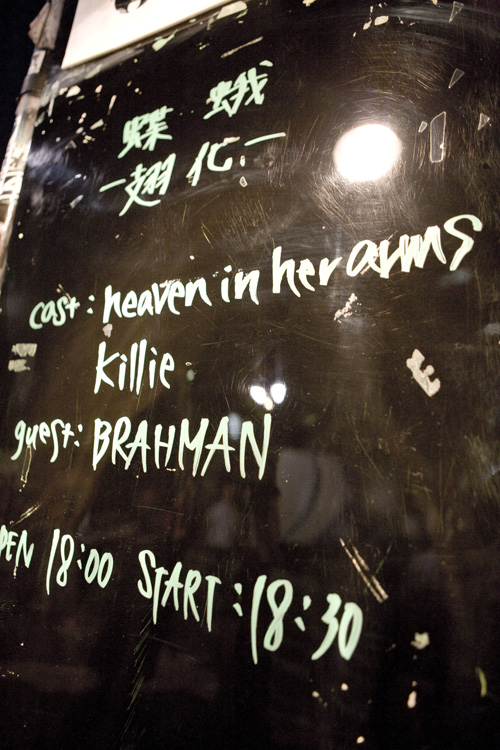 蝶 蛾
-翅化-
cast: heaven in her arms
killie
guest: BRAHMAN
OPEN 18:00 START:18:30